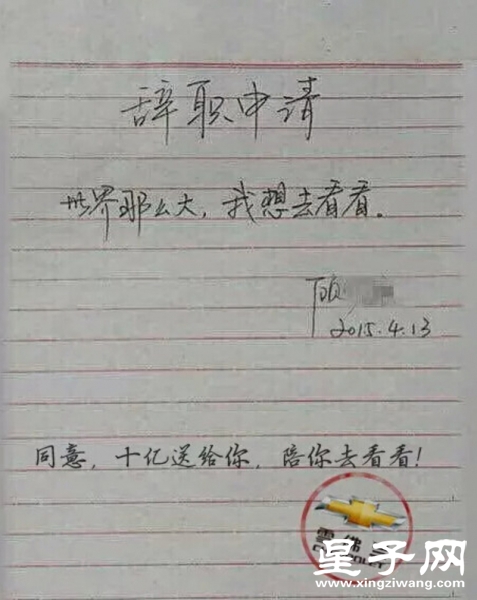 辞职申请
世界那么大，我想去看看。
顾
2015.4.13
同意，十亿送给你，陪你去看看！
雪佛
星子网
www.xingziwang.com